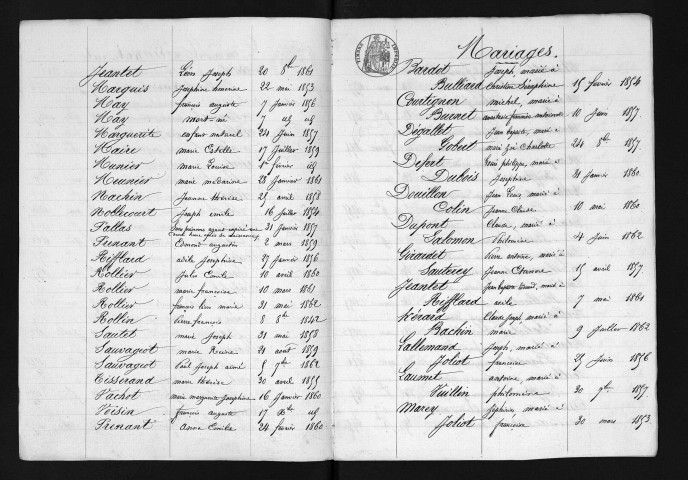 Jeantet Léon Joseph 20 8bre 1861
Marquis Joséphine honorine 22 mai 1853
May françois auguste 7 janvier 1856
May mort-né 7 id id
Marguerite enfant naturel 24 juin 1857
Maire marie Estelle 17 Juillet 1859
Munier marie Louise 5 février id
Meunier marie médarine 28 janvier 1861
Nachin Jeanne thérèse 25 avril 1858
Noblecourt Joseph emile 16 juillet 1854
Pallas 31 janvier 1857
Prenant Edmond augustin 2 mars 1859
Rifflard adèle Joséphine 27 janvier 1856
Rollier Jules Emile 10 avril 1860
Rollier marie françoise 10 mars 1861
Rollier françois Léon marie 31 mai 1862
Rollin Pierre françois 8 8bre 1842
Sautet marie Joseph 31 mai 1858
Sauvageot marie Louise 21 août 1859
Sauvageot Paul Joseph aimé 5 7bre 1862
Tisserand marie thérèse 30 avril 1855
Vachot marie marguerite Joséphine 16 janvier 1860
Voisin françois auguste 17 Xbre id
Prenant Anne Emilie 24 février 1860
Mariages.
Bardet Joseph, marié à
Bulliard Christine Séraphine 15 février 1854
Courtignon michel, marié à
Buenet 10 juin 1857
Dégallet Jean baptiste, marié à
Gobert marie Zoé Charlotte 24 8bre 1857
Defert Louis philippe, marié à
Dubois Joséphine 31 janvier 1860
Douillon Jean Louis, marié à
Colin Jeanne Claude 10 mai 1860
Dupont Claude, marié à
Salomon Philomène 4 juin 1862
Girardet Pierre antoine, marié à
Sauterey Jeanne Etiennette 15 avril 1857
Jeantet Jean baptiste, marié à
Rifflard adèle 7 mai 1861
Lérard Claude Joseph, marié à
Bachin marie 9 juillet 1862
Lallemand Joseph, marié à
Joliot françoise 25 juin 1856
Laumet antoine, marié à
Vuillin philomène 30 9bre 1857
Marey Séphirin, marié à
Joliot françoise 30 mars 1853